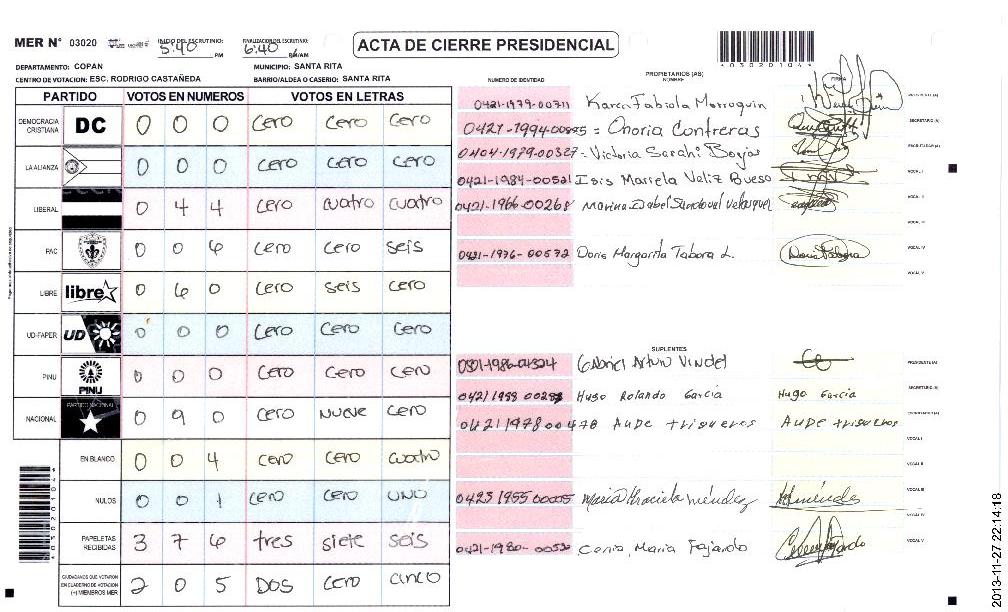 MER N° 03020 INICIO DEL ESCRUTINIO: 5:40 PM FINALIZACION DEL ESCRUTINIO: 6:40 PM/AM
ACTA DE CIERRE PRESIDENCIAL
403020104
DEPARTAMENTO: COPAN MUNICIPIO: SANTA RITA
CENTRO DE VOTACION: ESC. RODRIGO CASTAÑEDA BARRIO/ALDEA O CASERIO: SANTA RITA
PARTIDO VOTOS EN NUMEROS VOTOS EN LETRAS
DEMOCRACIA CRISTIANA DC 0 0 0 cero cero cero
LA ALIANZA 0 0 0 cero cero cero
LIBERAL 0 4 4 cero cuatro cuatro
PAC 0 0 6 cero cero seis
LIBRE libre 0 6 0 cero seis cero
UD-FAPER UD 0 0 0 cero cero cero
PINU PINU 0 0 0 cero cero cero
NACIONAL PARTIDO NACIONAL 0 9 0 cero nueve cero
EN BLANCO 0 0 4 cero cero cuatro
NULOS 0 0 1 cero cero uno
PAPELETAS RECIBIDAS 3 7 6 tres siete seis
CIUDADANOS QUE VOTARON EN CUADERNO DE VOTACION (+) MIEMBROS MER 2 0 5 Dos cero cinco
403020104
NUMERO DE IDENTIDAD PROPIETARIOS (AS) NOMBRE FIRMA
0421-1979-00711 Karen Fabiola Morroquin
0421-1994-00895 = Onoria Contreras SECRETARIO (A)
0404-1979-00327 - Victoria Sarahi Borjas ESCRUTADOR (A)
0421-1984-00521 Isis Marcela Veliz Bueso VOCAL I
0421-1966-00268 Marina Isabel Sandoval Velasquez VOCAL II
VOCAL III
0421-1976-00572 Doris Margarita Tabora L. Doris Tabora VOCAL IV
VOCAL V
SUPLENTES
0301-1986-04324 Gabriel Arturo Vindel PRESIDENTE (A)
0421 1988 00283 Hugo Rolando Garcia Hugo Garcia SECRETARIO (A)
0421 1978 00478 Aude trisueros Aude trisueros ESCRUTADOR (A)
VOCAL I
VOCAL II
0423 1955 00005 Maria Graciela Méndez VOCAL III
VOCAL IV
0421-1980-00530 Maria Fajardo VOCAL V
2013-11-27 22:14:18